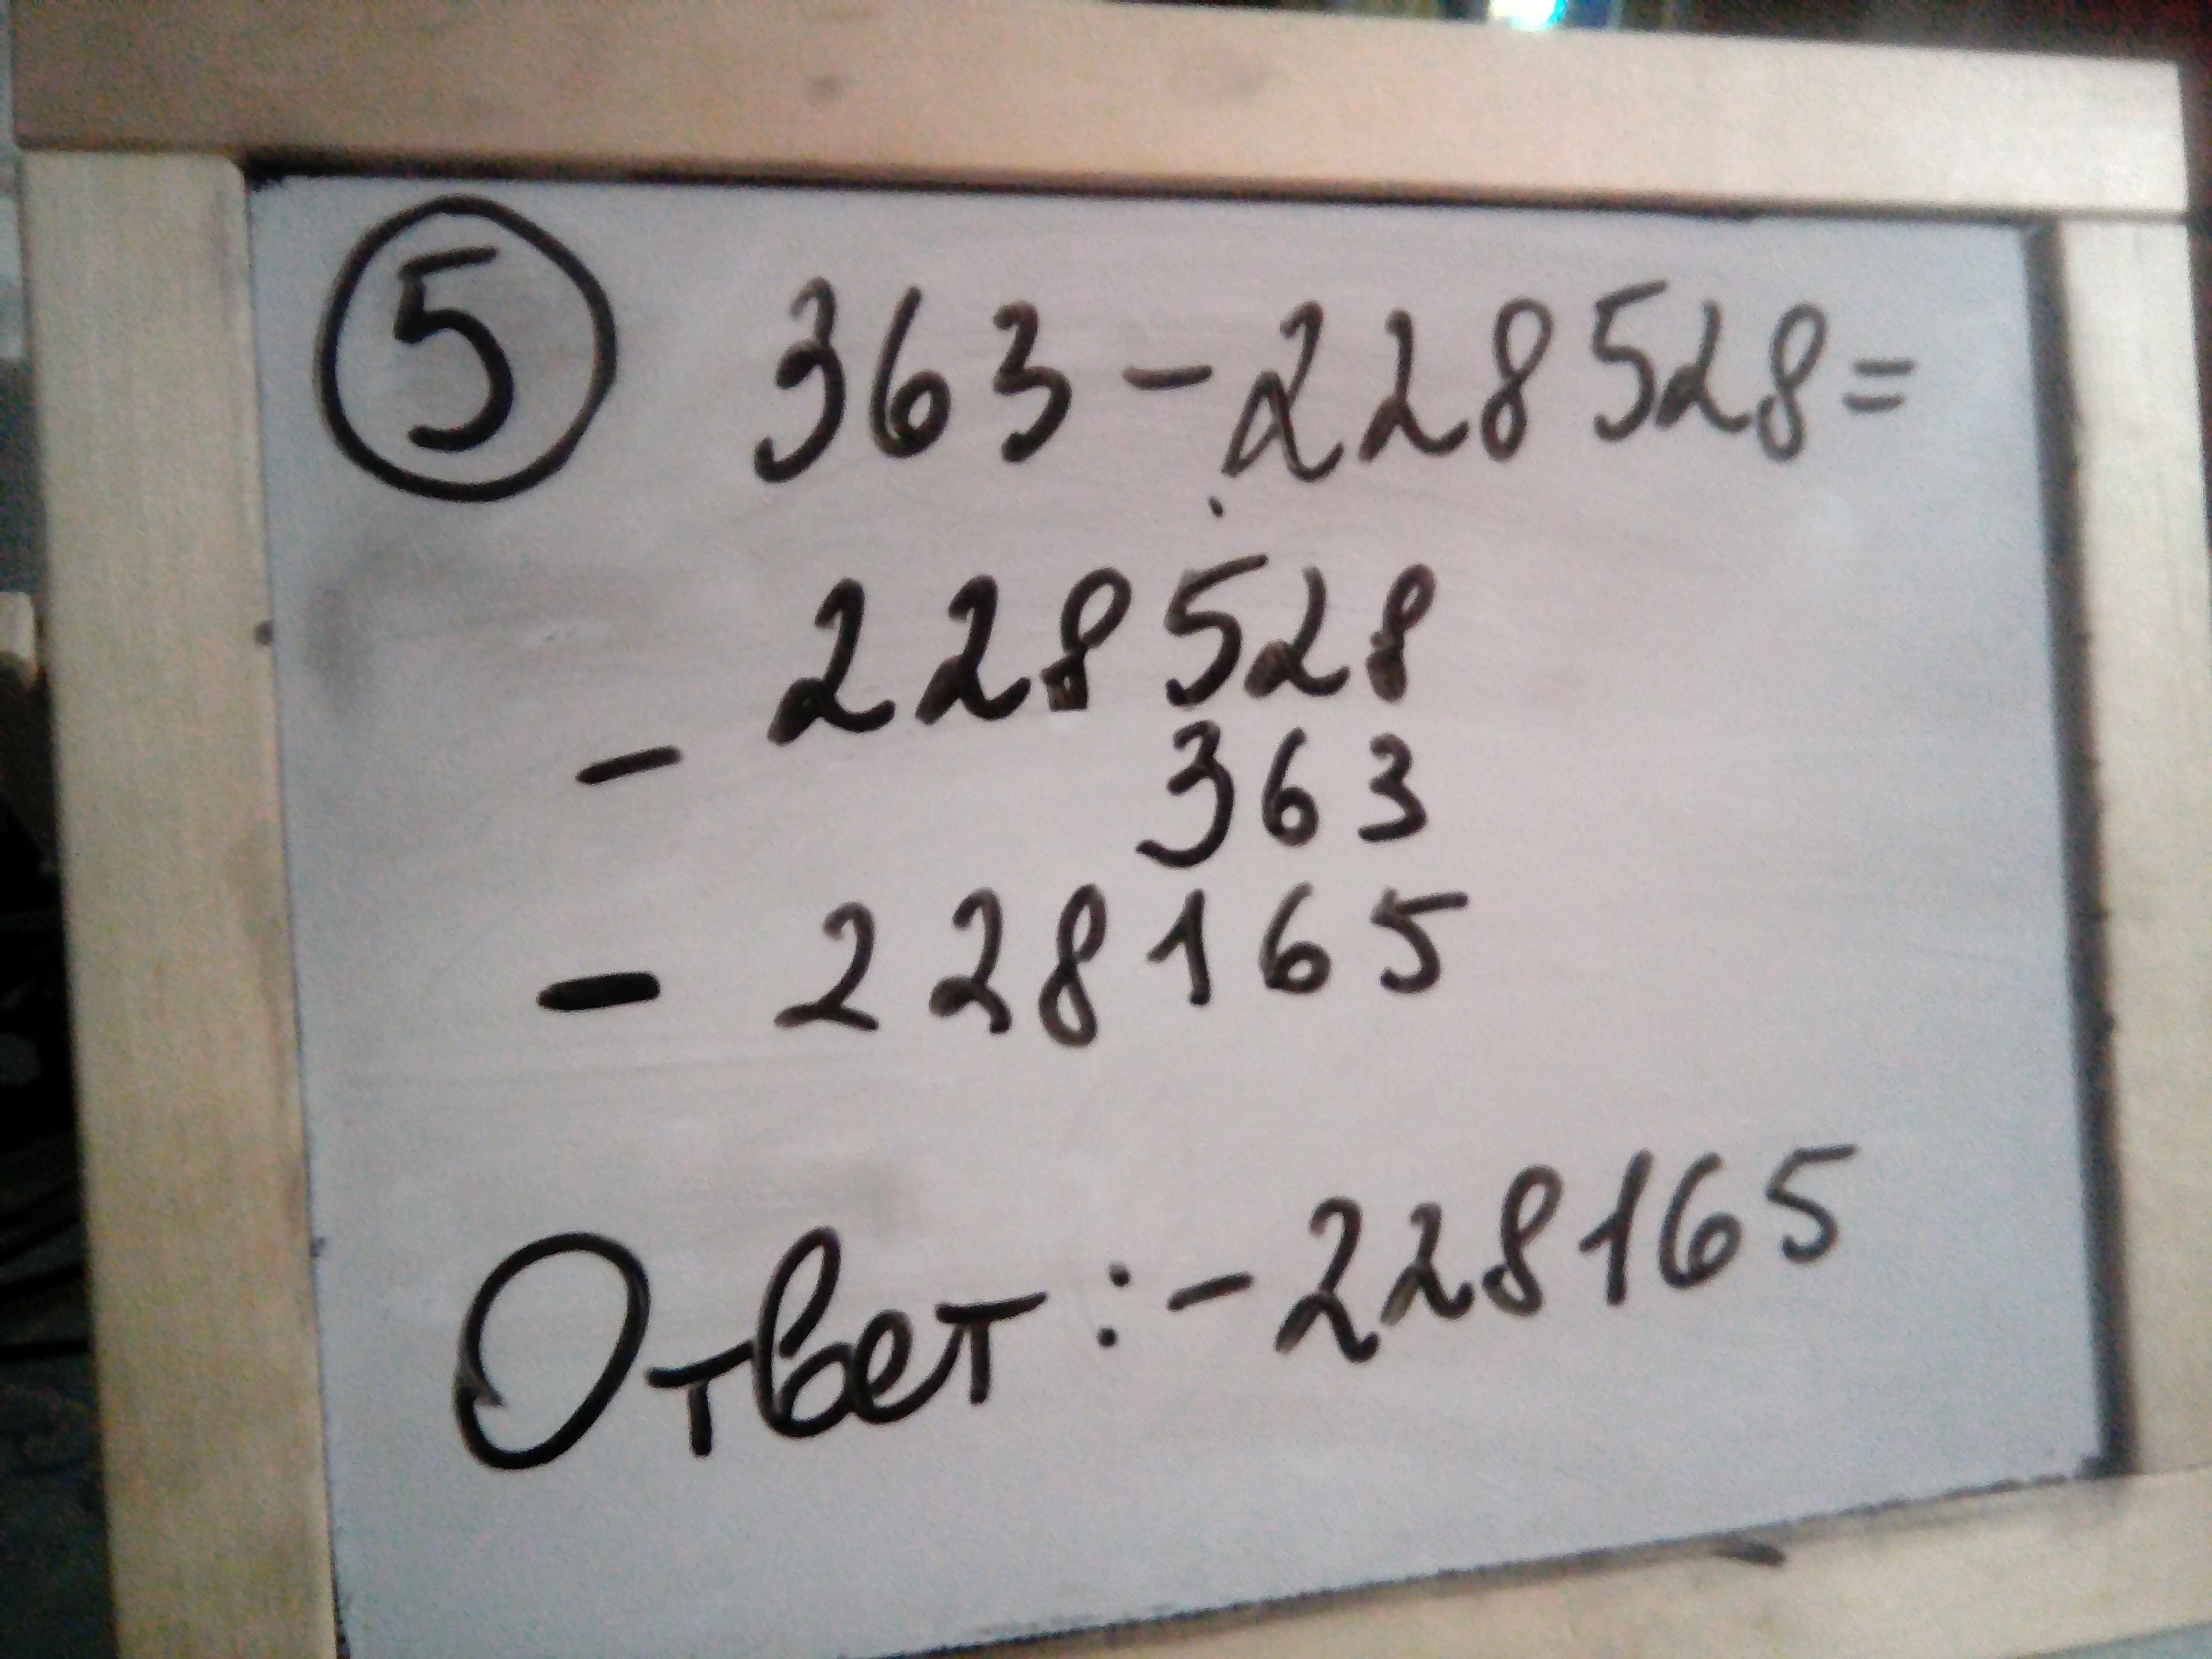 5 363-228528=
228528
-
363
- 228165
Ответ:-228165